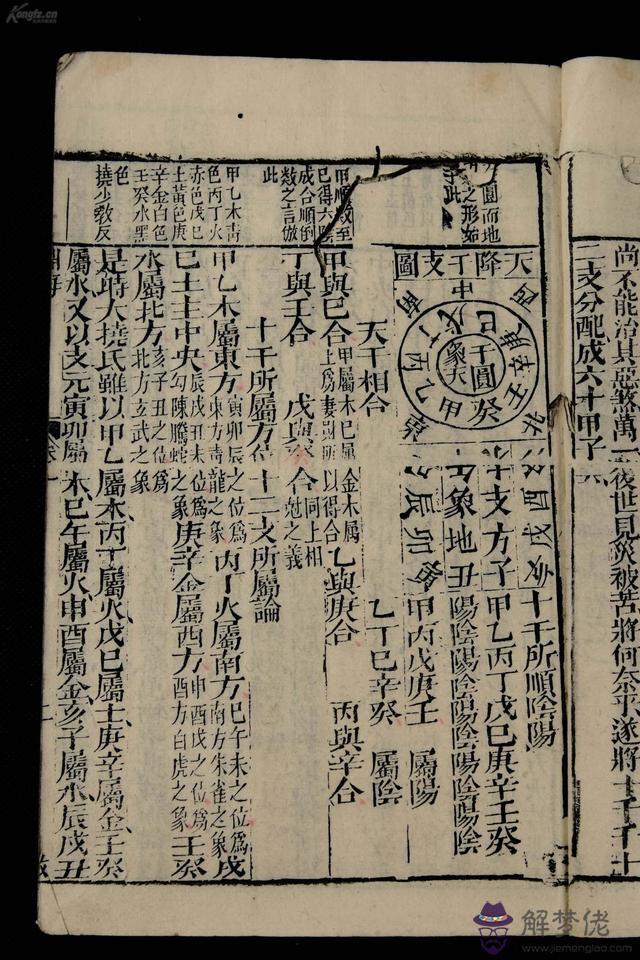 Kongfz.cn
尚不能治其惡煞萬一後世見災被苦將何奈乎遂將十千千十
二支分配成六十甲子
天降干支圖
十干所順陰陽
十支方子甲乙丙丁戊巳庚辛壬癸
象地丑陽陰陽陰陽陰陽陰陽陰
甲丙戊庚壬 屬陽
乙丁巳辛癸 屬陰
天干相合
甲與巳合 乙與庚合 丙與辛合
丁與壬合 戊與癸合
十干所屬方位 十二支所屬論
甲乙木屬東方寅卯辰之位為東方青龍之象丙丁火屬南方巳午未之位為南方朱雀之象戊
巳土主中央辰戌丑未位為勾陳騰蛇之象庚辛金屬西方申酉戌之位為酉方白虎之象壬癸
水屬北方亥子丑之位為北方玄武之象
是時大撓氏雖以甲乙屬木丙丁屬火戊巳屬土庚辛屬金壬癸
屬水又以支元寅卯屬木巳午屬火申酉屬金亥子屬水辰戌丑
甲順數至
巳得六陰
成合順倒
數之言倣
此
甲乙木青
色丙丁火
赤色戊巳
土黃色庚
辛金白色
壬癸水黑
色
撓少教反
解梦佬
www.jiemenglao.com